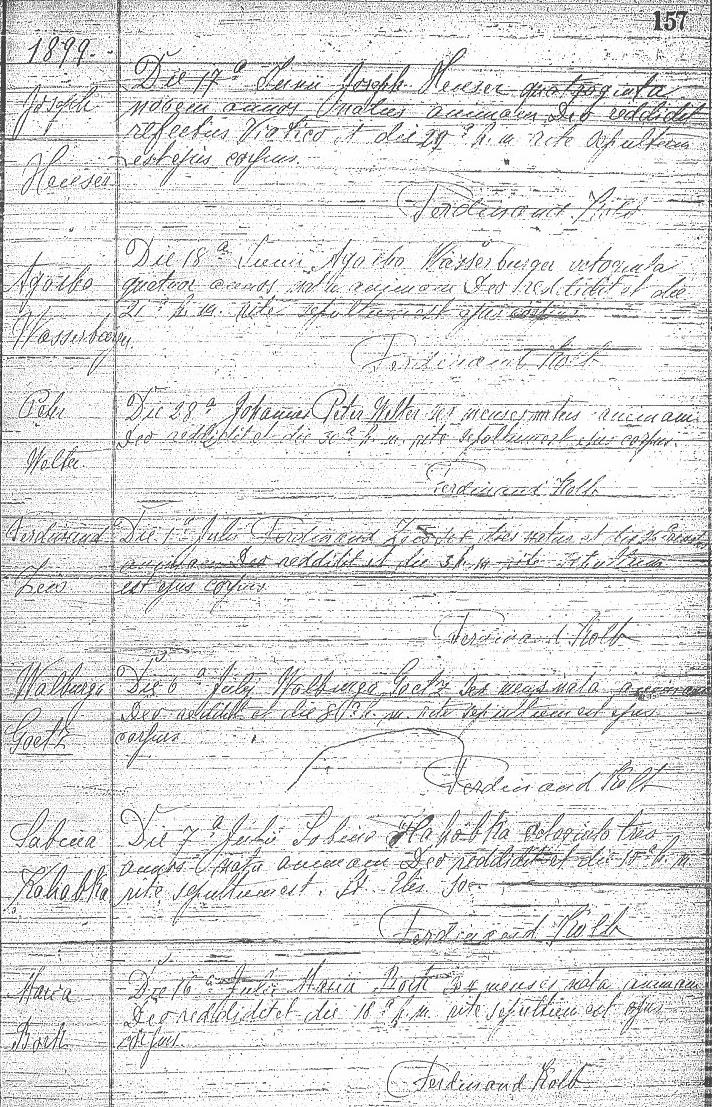 157
1899.
Joseph
Heuser
Die 17a Junii Joseph Heuser quatraginta
novem annos natus animam Deo reddidit
refectus Viatico et die 29a h. m. rite sepultum
est ejus corpus.
Ferdinand Kolb
Agatha
Wasserburger
Die 18a Junii Agatha Wasserburger octoginta
quatuor annos nata animam Deo reddidit et die
21a h. m. rite sepultum est ejus corpus
Ferdinand Kolb
Peter
Welter
Die 28a Johannes Peter Welter sex menses natus animam
Deo reddidit et die 30a h. m. rite sepultum est ejus corpus.
Ferdinand Kolb
Ferdinand
Zeis
Die 1a Julii Ferdinand Zeis dies natus et die
animam Deo reddidit et die 3 h. m. rite sepultum
est ejus corpus
Ferdinand Kolb
Walburga
Goetz
Die 6a July Walburga Goetz sex mens nata animam
Deo reddidit et die 8a h. m. rite sepultum est ejus
corpus
Ferdinand Kolb
Sabina
Kahabka
Die 7a Julii Sabina Kahabka octoginta tres
annos nata animam Deo reddidit et die h. m.
rite sepultum est.
Ferdinand Kolb
Maria
Bork
Die 16a Julii Maria Bork menses nata animam
Deo reddidit et die 18a h. m. rite sepultum est ejus
corpus.
Ferdinand Kolb